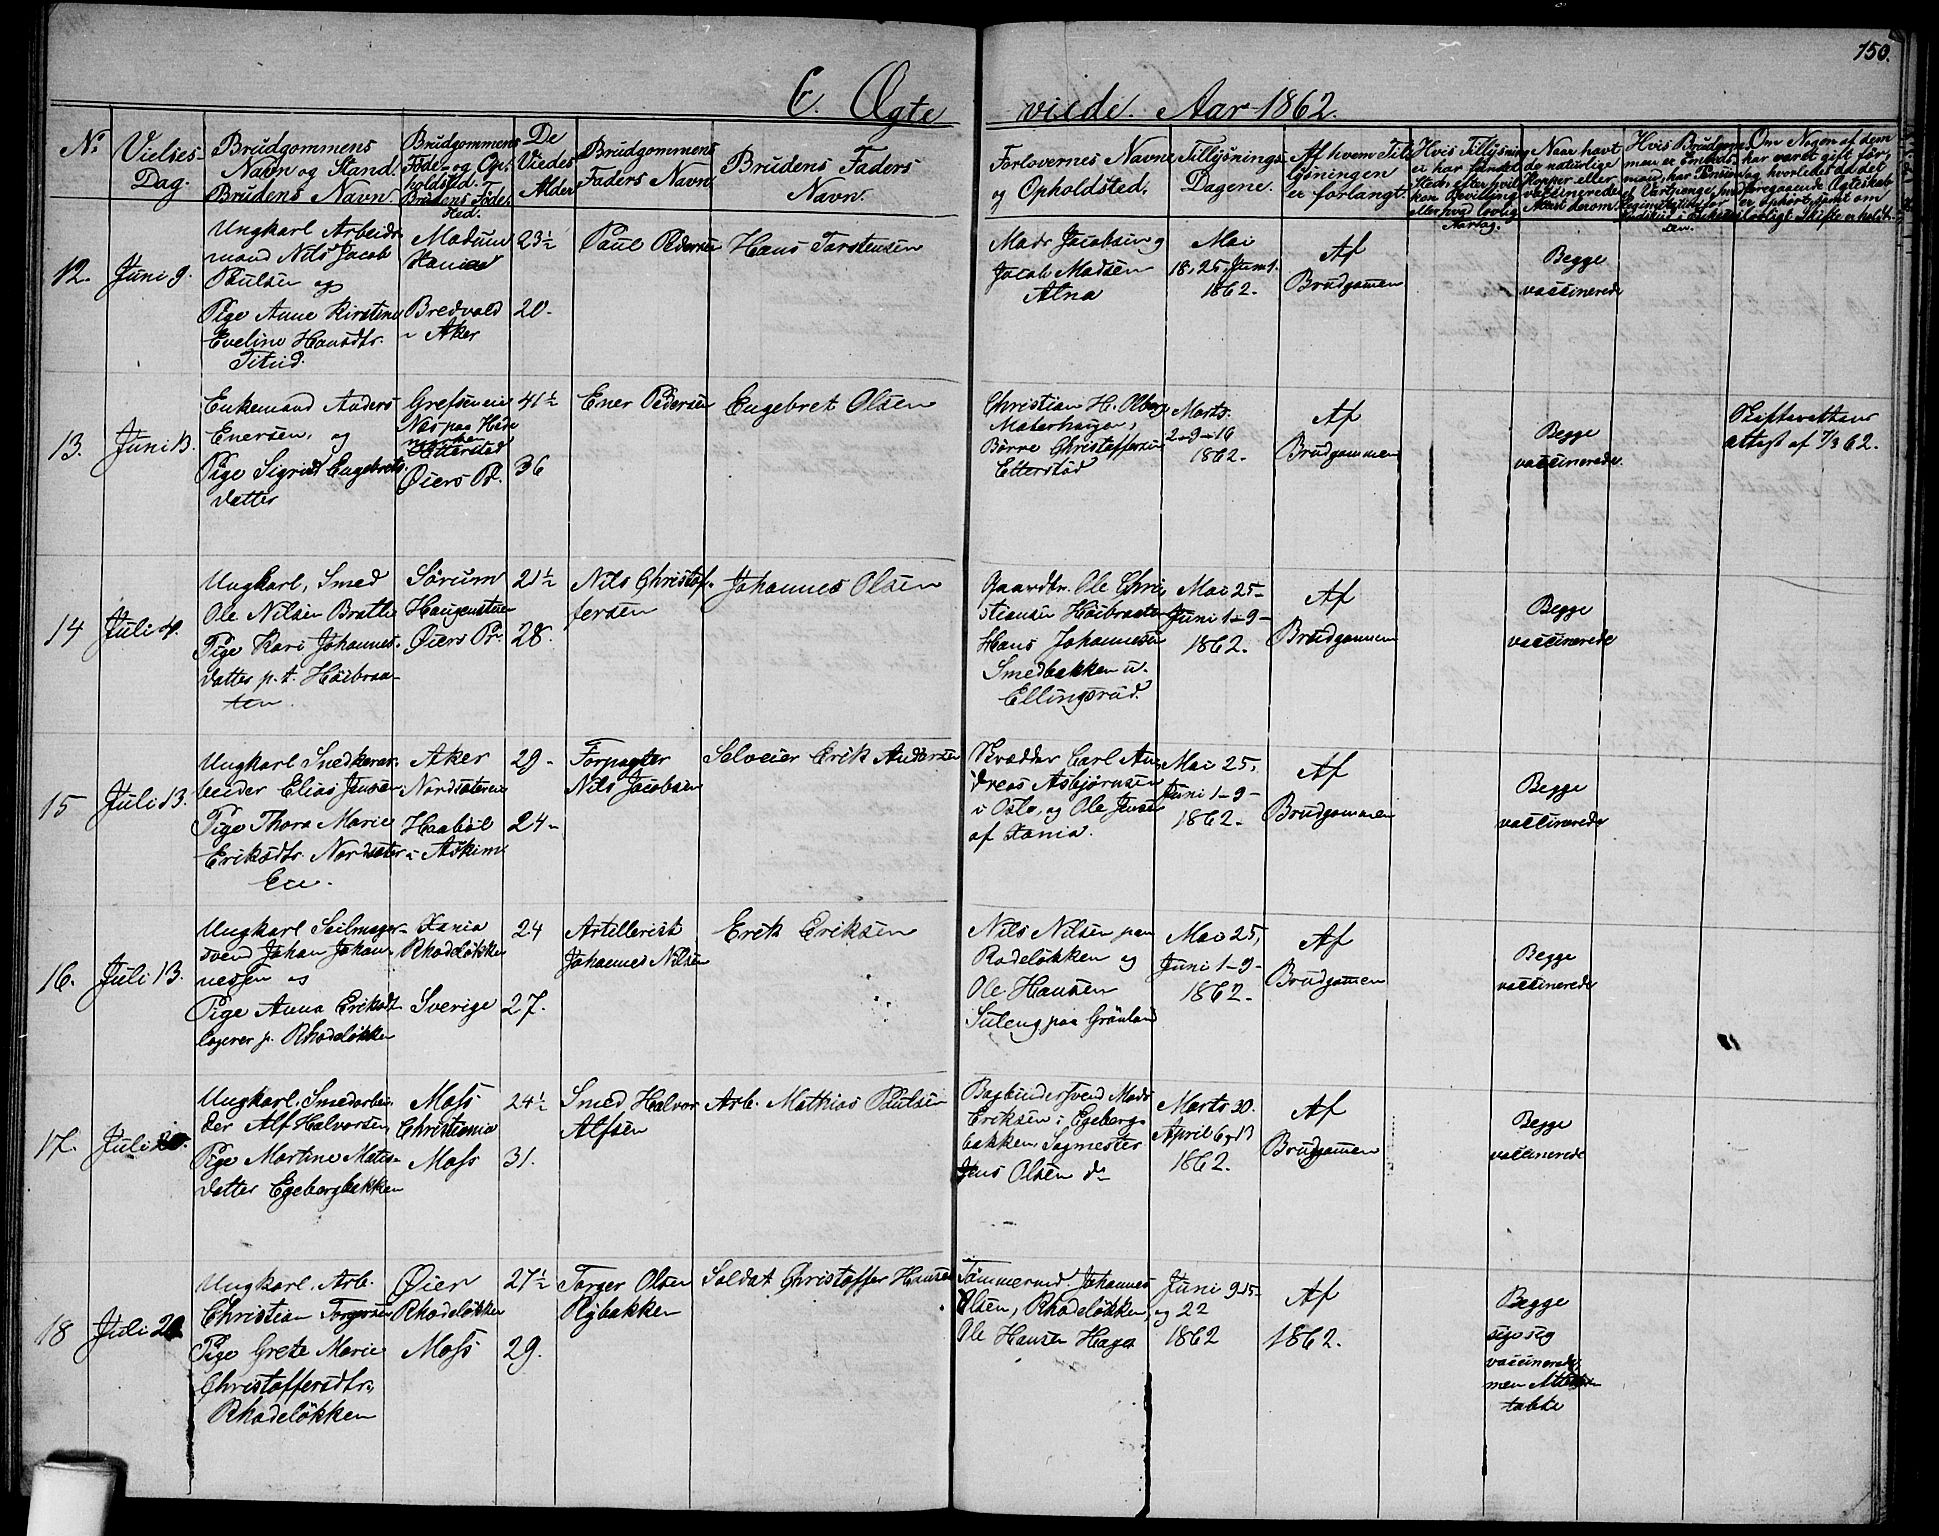 150.
C. Ægte viede. Aar 1862.
No
Vielses-
Dag.
Brudgommens
Navn og Stand.
Brudens Navn.
Brudgommens
Föde- og Op-
holdsted.
Brudens Föde-
sted.
De
Viedes
Alder
Brudgommens
Faders Navn.
Brudens Faders
Navn.
Forlovernes Navne
og Opholdsted.
Tillysnings-
Dagene.
Af hvem Til-
lysningen
er forlangt.
Hvis Tillysning
ei har fundet
Sted, efter hvil-
ken Bevilling
eller hvad lovlig
Naar havt
de naturlige
Kopper eller
vaccinerede
Attest derom.
Hvis Brudgom-
men er Embeds-
mand, har
Om Nogen af dem
har været gift før,
og hvorledes da det
foregaaende Ægteskab
er ophørt, samt om
lovligt Skifte er holdt.
12.
Juni 9.
Ungkarl Arbeids-
mand Nils Jacob
Paulsen og
Pige Anne Kirstine
Eveline Hansdtr.
Modum
Xania
Bredvold
i Aker
23½
20.
Paul Pedersen
Hans Torstensen
Mads Jacobsen og
Jacob Madsen
Alna
Mai
18, 25, Juni 1.
1862.
Af
Brudgommen
Begge
vaccinerede
13.
Juni 13.
Enkemand Anders
Enersen, og
Pige Sigrid Engebrets-
datter
Grefsen eie
Næs paa Hede-
marken
Etterstad
Øiers Pr.
41½
36
Ener Pedersen
Engebret Olsen
Christian H. Olberg
Materhaugen,
Börre Christoffersen
Etterstad
Marts.
2-9-16
1862.
Af
Brudgommen
Begge
vaccinerede.
Skifterettens
Attest af 7/3 62.
14
Juli 4.
Ungkarl, Smed
Ole Nilsen Bratli
Pige Kari Johannes-
datter p. t. Höibraa-
ten.
Sörum
Haugenstuen
Øiers Pr.
21½
28.
Nils Christof-
fersen
Johannes Olsen
Gaardbr. Ole Chri-
stiansen Höibraaten
Hans Johannesen
Smedbakken u.
Ellingsrud.
Mai 25-
Juni 1-9-
1862.
Af
Brudgommen
Begge
vaccinerede
15
Juli 13.
Ungkarl Snedkerar-
beider Elias Jensen
Pige Thora Marie
Eriksdtr. Nordsæter
Eie.
Aker
Nordsæteren
Haaböl
i Askim
29.
24-
Forpagter
Nils Jacobsen
Selveier Erik Andersen
Skrædder Carl An-
dreas Asbjørnsen
i Oslo, og Ole Jensen
af Xania.
Mai 25,
Juni 1-9-
1862.
Af
Brudgommen
Begge
vaccinerede
16.
Juli 13.
Ungkarl Seilmager-
svend Johan Johan-
nessen og
Pige Anna Eriksdt.
logerer p. Rhodeløkken
Xania
Rhodeløkken
Sverige
24
27.
Artillerist
Johannes Nilsen
Erik Eriksen
Nils Nilsen paa
Rodeløkken og
Ole Hansen
Suleng paa Grönland
Mai 25,
Juni 1-9-
1862.
Af
Brudgommen
Begge
vaccinerede
17.
Juli 20.
Ungkarl. Smedarbei-
der Alf Halvorsen
Pige Martine Mats-
datter Egebergbakken
Moss
Christiania
Moss
24½
31.
Smed Halvor
Alfsen
Arb. Mathias Paulsen
Bogbindersvend Mads
Eriksen i Egeberg-
bakken, Sagmester
Jens Olsen do
Marts 30.
April 6, 13
1862.
Af
Brudgommen
Begge
vaccinerede
18
Juli 20.
Ungkarl. Arb.
Christian Torgersen
Pige Grete Marie
Christoffersdtr.,
Rhodeløkken
Øier
Rhodeløkken
Moss
27½
29.
Torger Olsen
Rybakken
Soldat Christoffer Hansen
Tömmermd. Johannes
Olsen, Rhodeløkken,
Ole Hansen Hagen
Juni 9-15-
og 22
1862
Af
1862.
Begge
sige sig
vaccinerede,
men Attesten
tabte